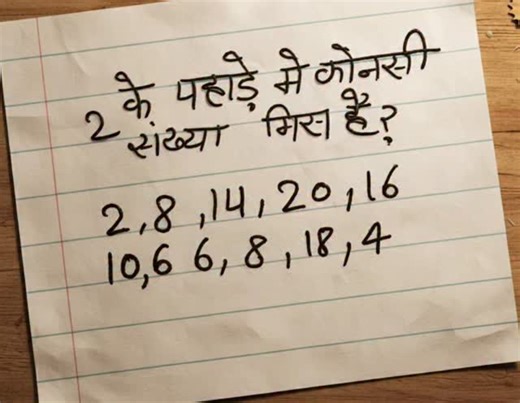 2 के पहाड़े मे कोनसी
संख्या मिस है?
2,8,14,20,16
10,6 6,8,18,4